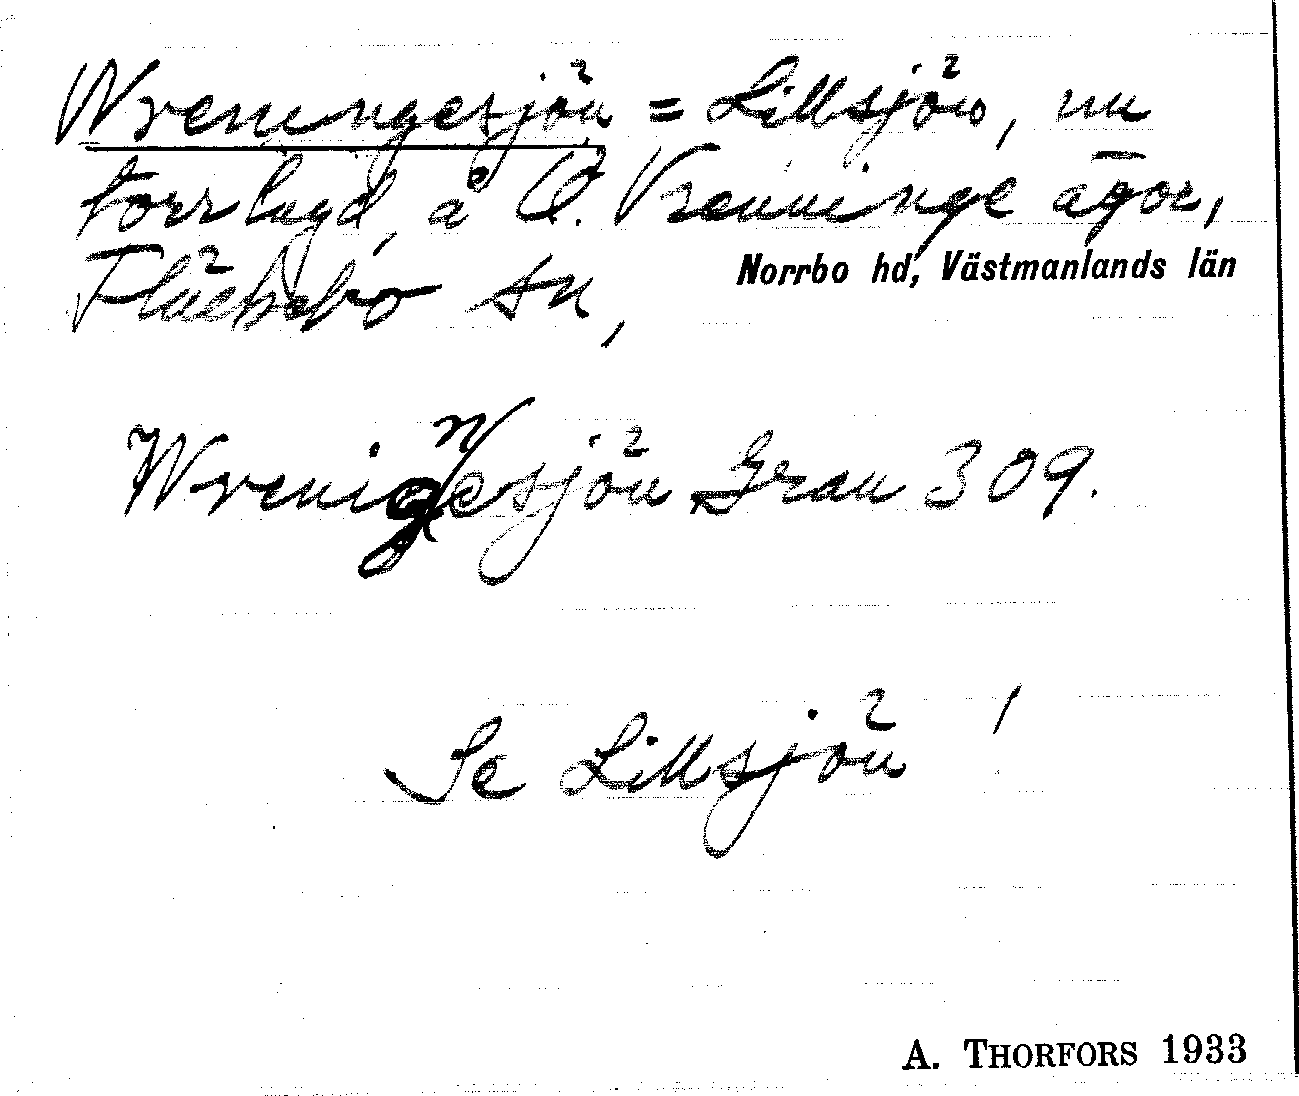 Wreningesjön = Lillsjön, nu
torrlagd, å Ö. Vrenninge ägor,
Fläckebo sn,
Norrbo hd, Västmanlands län
Wreningesjön Grau 309.
Se Lillsjön!
A. THORFORS 1933